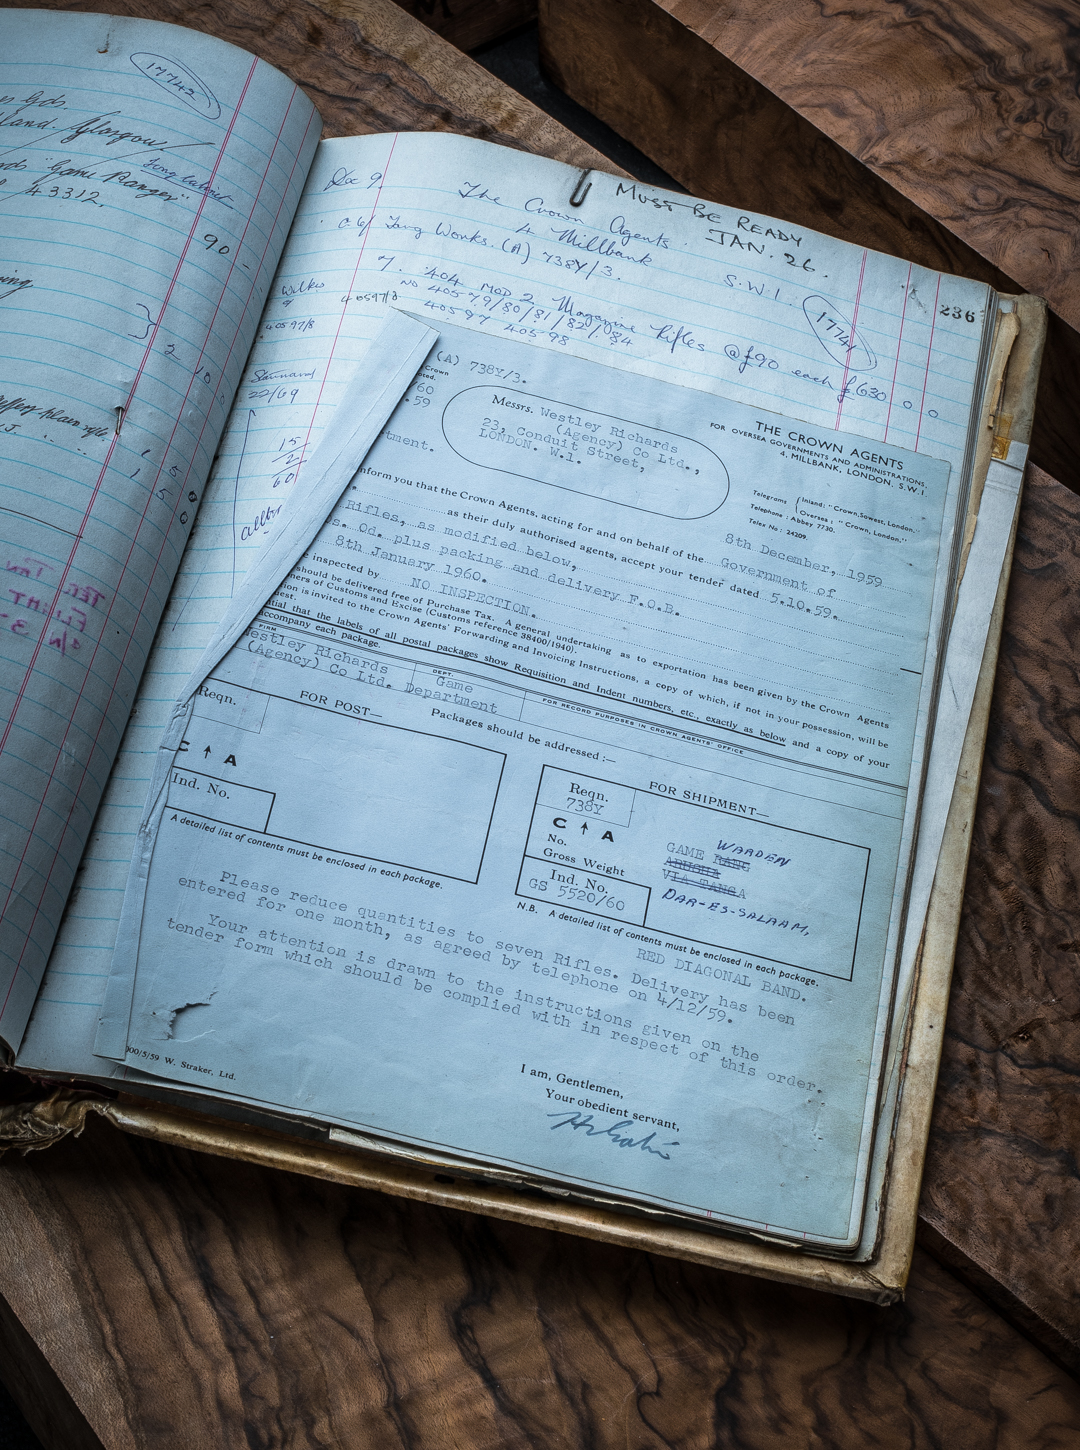 17742
Glasgow
"Game Ranger"
43312.
90 -
2
10
Dec 9.
The Crown Agents.
4 Millbank
S.W.1.
MUST BE READY
JAN. 26.
(A) 738Y/3.
7. .404 MOD 2 Magazine Rifles @ £90 each £630 0 0
No 40579/80/81/82/084
40597 40598
17741
236
40597/8
22/69
15/
2/
60
(A) 738Y/3.
Crown
/60
.59
Messrs. Westley Richards
(Agency) Co Ltd.,
23, Conduit Street,
LONDON. W.1.
THE CROWN AGENTS
FOR OVERSEA GOVERNMENTS AND ADMINISTRATIONS,
4, MILLBANK, LONDON, S.W.1.
Telegrams { Inland: "Crown, Sowest, London."
Oversea: "Crown, London."
Telephone: Abbey 7730.
Telex No: 24209.
8th December, 1959
tment.
nform you that the Crown Agents, acting for and on behalf of the Government of
as their duly authorised agents, accept your tender dated 5.10.59.
Rifles, as modified below,
s. 0d. plus packing and delivery F.O.B.
8th January 1960.
inspected by NO INSPECTION.
should be delivered free of Purchase Tax. A general undertaking as to exportation has been given by the Crown Agents
ners of Customs and Excise (Customs reference 38400/1940).
tion is invited to the Crown Agents' Forwarding and Invoicing Instructions, a copy of which, if not in your possession, will be
uest.
ntial that the labels of all postal packages show Requisition and Indent numbers, etc., exactly as below and a copy of your
accompany each package.
FIRM
Westley Richards
(Agency) Co Ltd.
DEPT.
Game
Department
FOR RECORD PURPOSES IN CROWN AGENTS' OFFICE
Packages should be addressed :—
Reqn.
FOR POST—
C ↑ A
Ind. No.
A detailed list of contents must be enclosed in each package.
Reqn.
738Y
FOR SHIPMENT—
C ↑ A
No.
Gross Weight
Ind. No.
GS 5520/60
GAME WARDEN
ARUSHA
VIA TANGA
DAR-ES-SALAAM,
N.B. A detailed list of contents must be enclosed in each package.
RED DIAGONAL BAND.
Please reduce quantities to seven Rifles. Delivery has been
entered for one month, as agreed by telephone on 4/12/59.
Your attention is drawn to the instructions given on the
tender form which should be complied with in respect of this order.
I am, Gentlemen,
Your obedient servant,
000/5/59 W. Straker, Ltd.